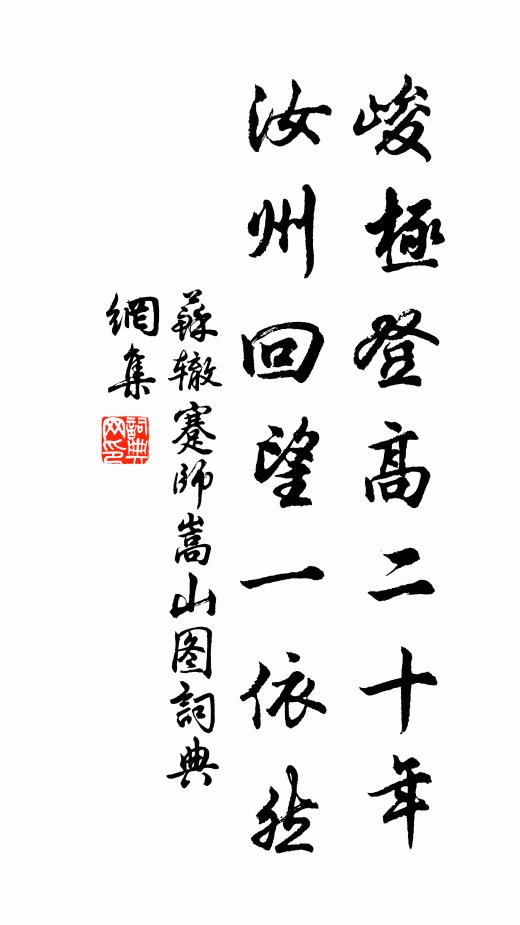 峻極登高二十年
汝州回望一依然
蘇辙蹇師嵩山图詞典
網集
詞典
网印